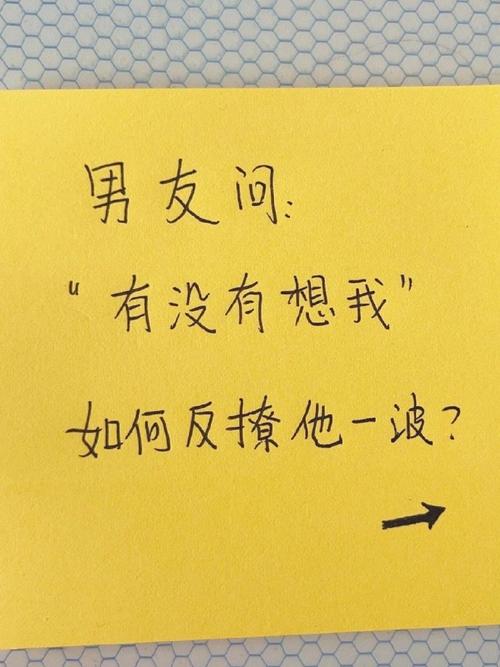 男友问:
“有没有想我”
如何反撩他一波?